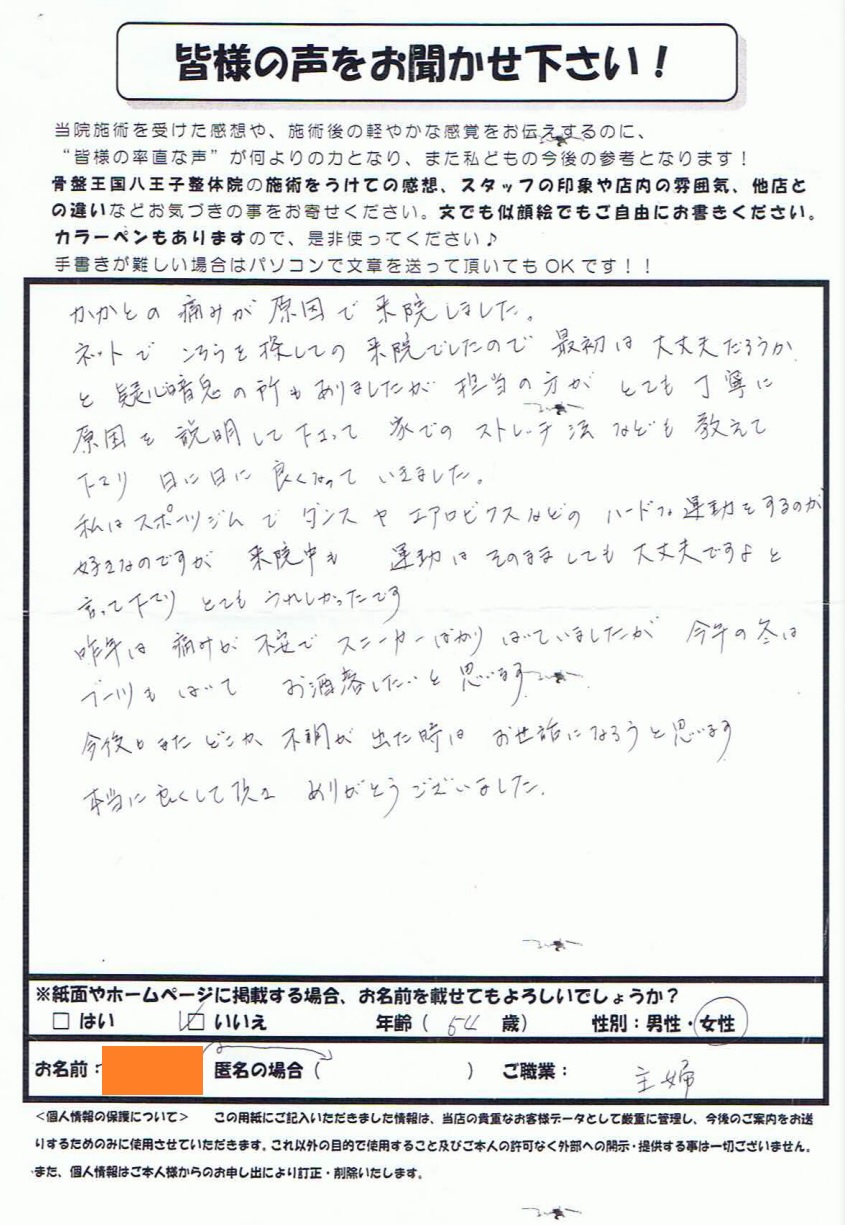 皆様の声をお聞かせ下さい！
当院施術を受けた感想や、施術後の軽やかな感覚をお伝えするのに、
“皆様の率直な声”が何よりの力となり、また私どもの今後の参考となります！
骨盤王国八王子整体院の施術をうけての感想、スタッフの印象や店内の雰囲気、他店と
の違いなどお気づきの事をお寄せください。文でも似顔絵でもご自由にお書きください。
カラーペンもありますので、是非使ってください♪
手書きが難しい場合はパソコンで文章を送って頂いてもOKです！！
かかとの痛みが原因で来院しました。
ネットで を探しての来院でしたので最初は大丈夫だろうか
と疑心暗鬼の所もありましたが担当の方がとても丁寧に
原因を説明して下さって家でのストレッチ法なども教えて
下さり日に日に良くなっていきました。
私はスポーツジムでダンスやエアロビクスなどのハードな運動をするのが
好きなのですが来院中も運動はそのまましても大丈夫ですよと
言って下さりとてもうれしかったです
昨年は痛みが不安でスニーカーばかりはいていましたが今年の冬は
ブーツもはいてお洒落したいと思います
今後もまたどこか不調が出た時はお世話になろうと思います
本当に良くして頂き ありがとうございました。
※紙面やホームページに掲載する場合、お名前を載せてもよろしいでしょうか？
□ はい ☑ いいえ 年齢（ 54 歳） 性別：男性・女性
お名前： 匿名の場合（ ） ご職業： 主婦
＜個人情報の保護について＞ この用紙にご記入いただきました情報は、当店の貴重なお客様データとして厳重に管理し、今後のご案内をお送
りするためのみに使用させていただきます。これ以外の目的で使用すること及びご本人の許可なく外部への開示・提供する事は一切ございません。
また、個人情報はご本人様からのお申し出により訂正・削除いたします。